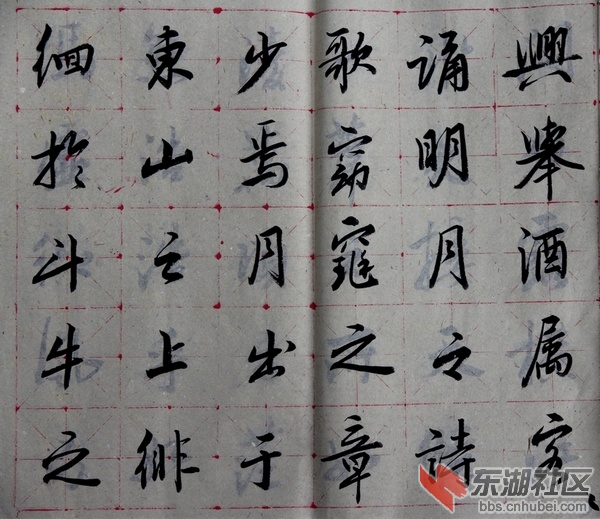 興舉酒属客
誦明月之詩
歌窈窕之章
少焉月出于
東山之上徘
徊於斗牛之
东湖社区
bbs.cnhubei.com